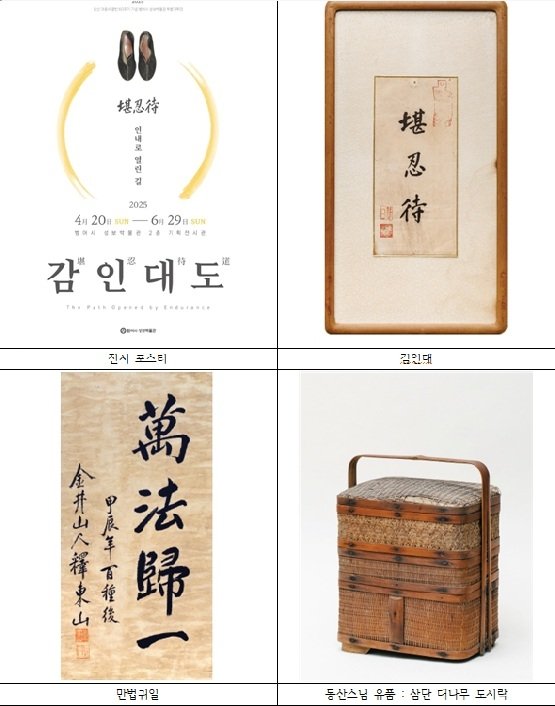 堪忍待
인내로 열린 길
2025
4월 20日 SUN — 6月 29日 SUN
범어사 성보박물관 2층 기획전시관
감인대도
堪 忍 待 道
The Path Opened by Endurance
범어사 성보박물관
전시 포스터
堪忍待
감인대
萬法歸一
甲辰年百種後
金井山人釋東山
만법귀일
동산스님 유품 : 삼단 대나무 도시락